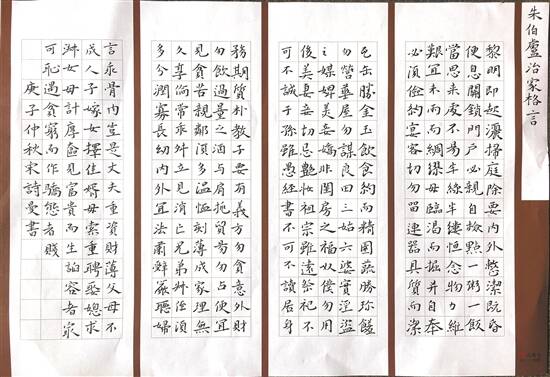 朱伯盧治家格言
黎明即起灑掃庭除要內外整潔既昏
便息關鎖門戶必親自檢點一粥一飯
當思來處不易半絲半縷恒念物力維
艱宜未雨而綢繆毋臨渴而掘井自奉
必須儉約宴客切勿留連器具質而潔
瓦缶勝金玉飲食約而精園蔬勝珍饈
勿營華屋勿謀良田三姑六婆實淫盜
之媒婢美妾嬌非閨房之福奴僕勿用
俊美妻妾切忌艷妝祖宗雖遠祭祀不
可不誠子孫雖愚經書不可不讀居身
務期質樸教子要有義方勿貪意外財
勿飲過量之酒与肩挑貿易勿占便宜
見貧苦親鄰須多溫恤刻薄成家理無
久享倫常乖舛立見消亡兄弟叔侄須
多分潤寡長幼內外宜法肅辭嚴聽婦
言乖骨肉豈是丈夫重資財薄父母不
成人子嫁女擇佳婿毋索重聘娶媳求
淑女毋計厚奩見富貴而生諂容者最
可恥遇貧窮而作驕態者賤
庚子仲秋宋詩曼書